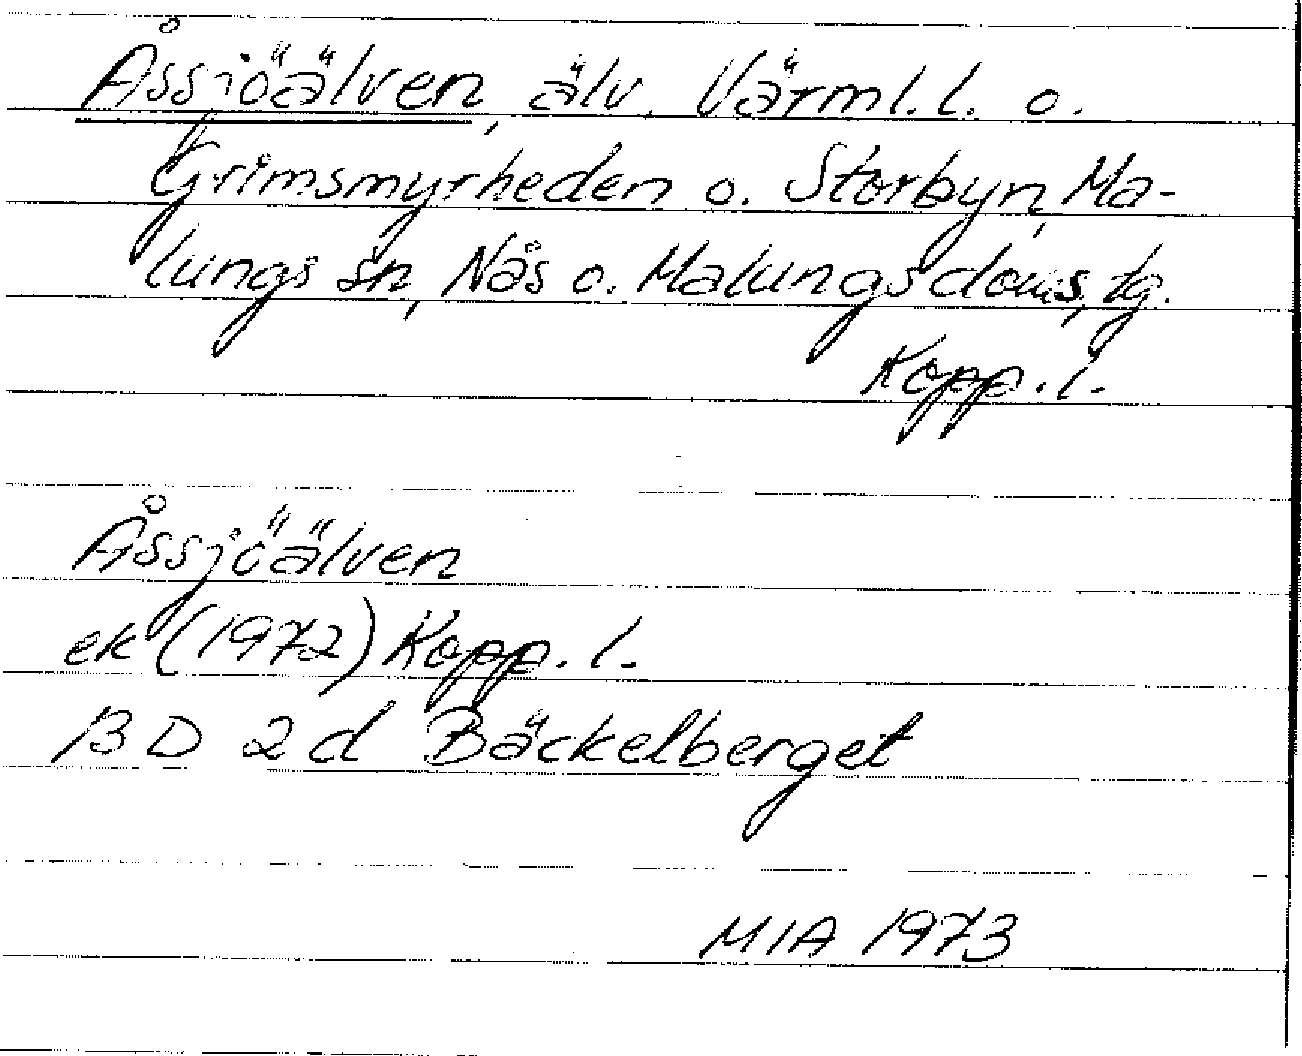 Åssjöälven, älv. Värml. l. o.
Grimsmyrheden o. Storbyn, Ma-
lungs sn, Nås o. Malungs doms. tg.
Kopp. l.
Åssjöälven
ek (1972) Kopp. l.
13 D 2 d Bäckelberget
MIA 1973